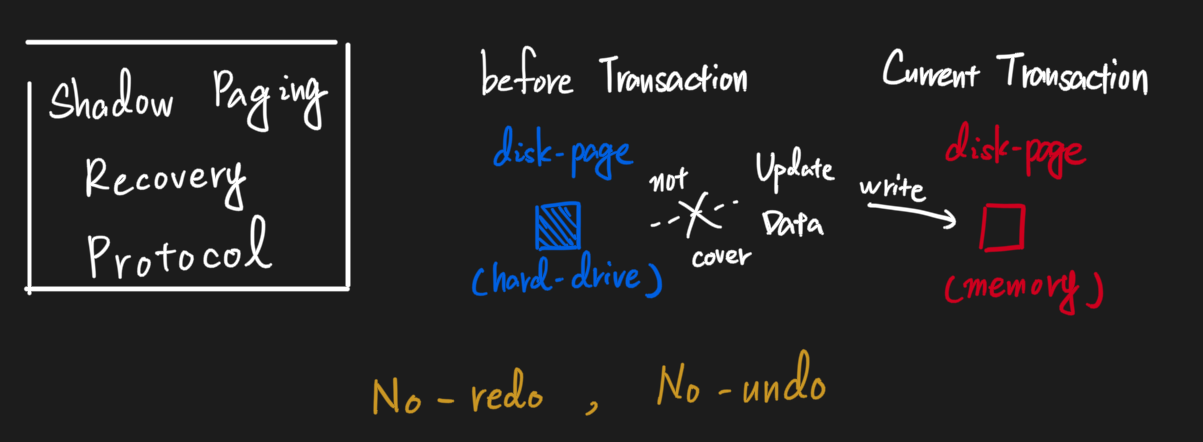 Shadow Paging
Recovery
Protocol
before Transaction
disk-page
(hard-drive)
not
cover
Update
Data
write
Current Transaction
disk-page
(memory)
No-redo , No-undo